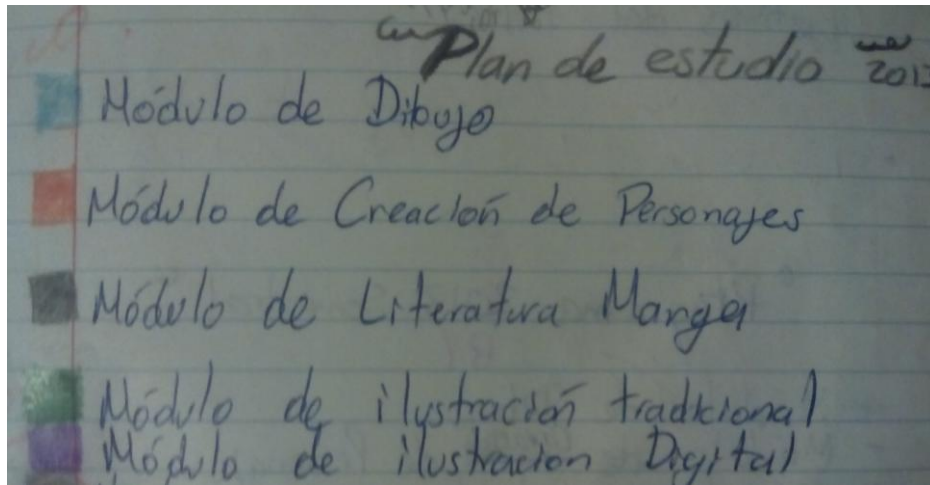 Plan de estudio
Módulo de Dibujo
Módulo de Creación de Personajes
Módulo de Literatura Manga
Módulo de ilustración tradicional
Módulo de ilustracion Digital